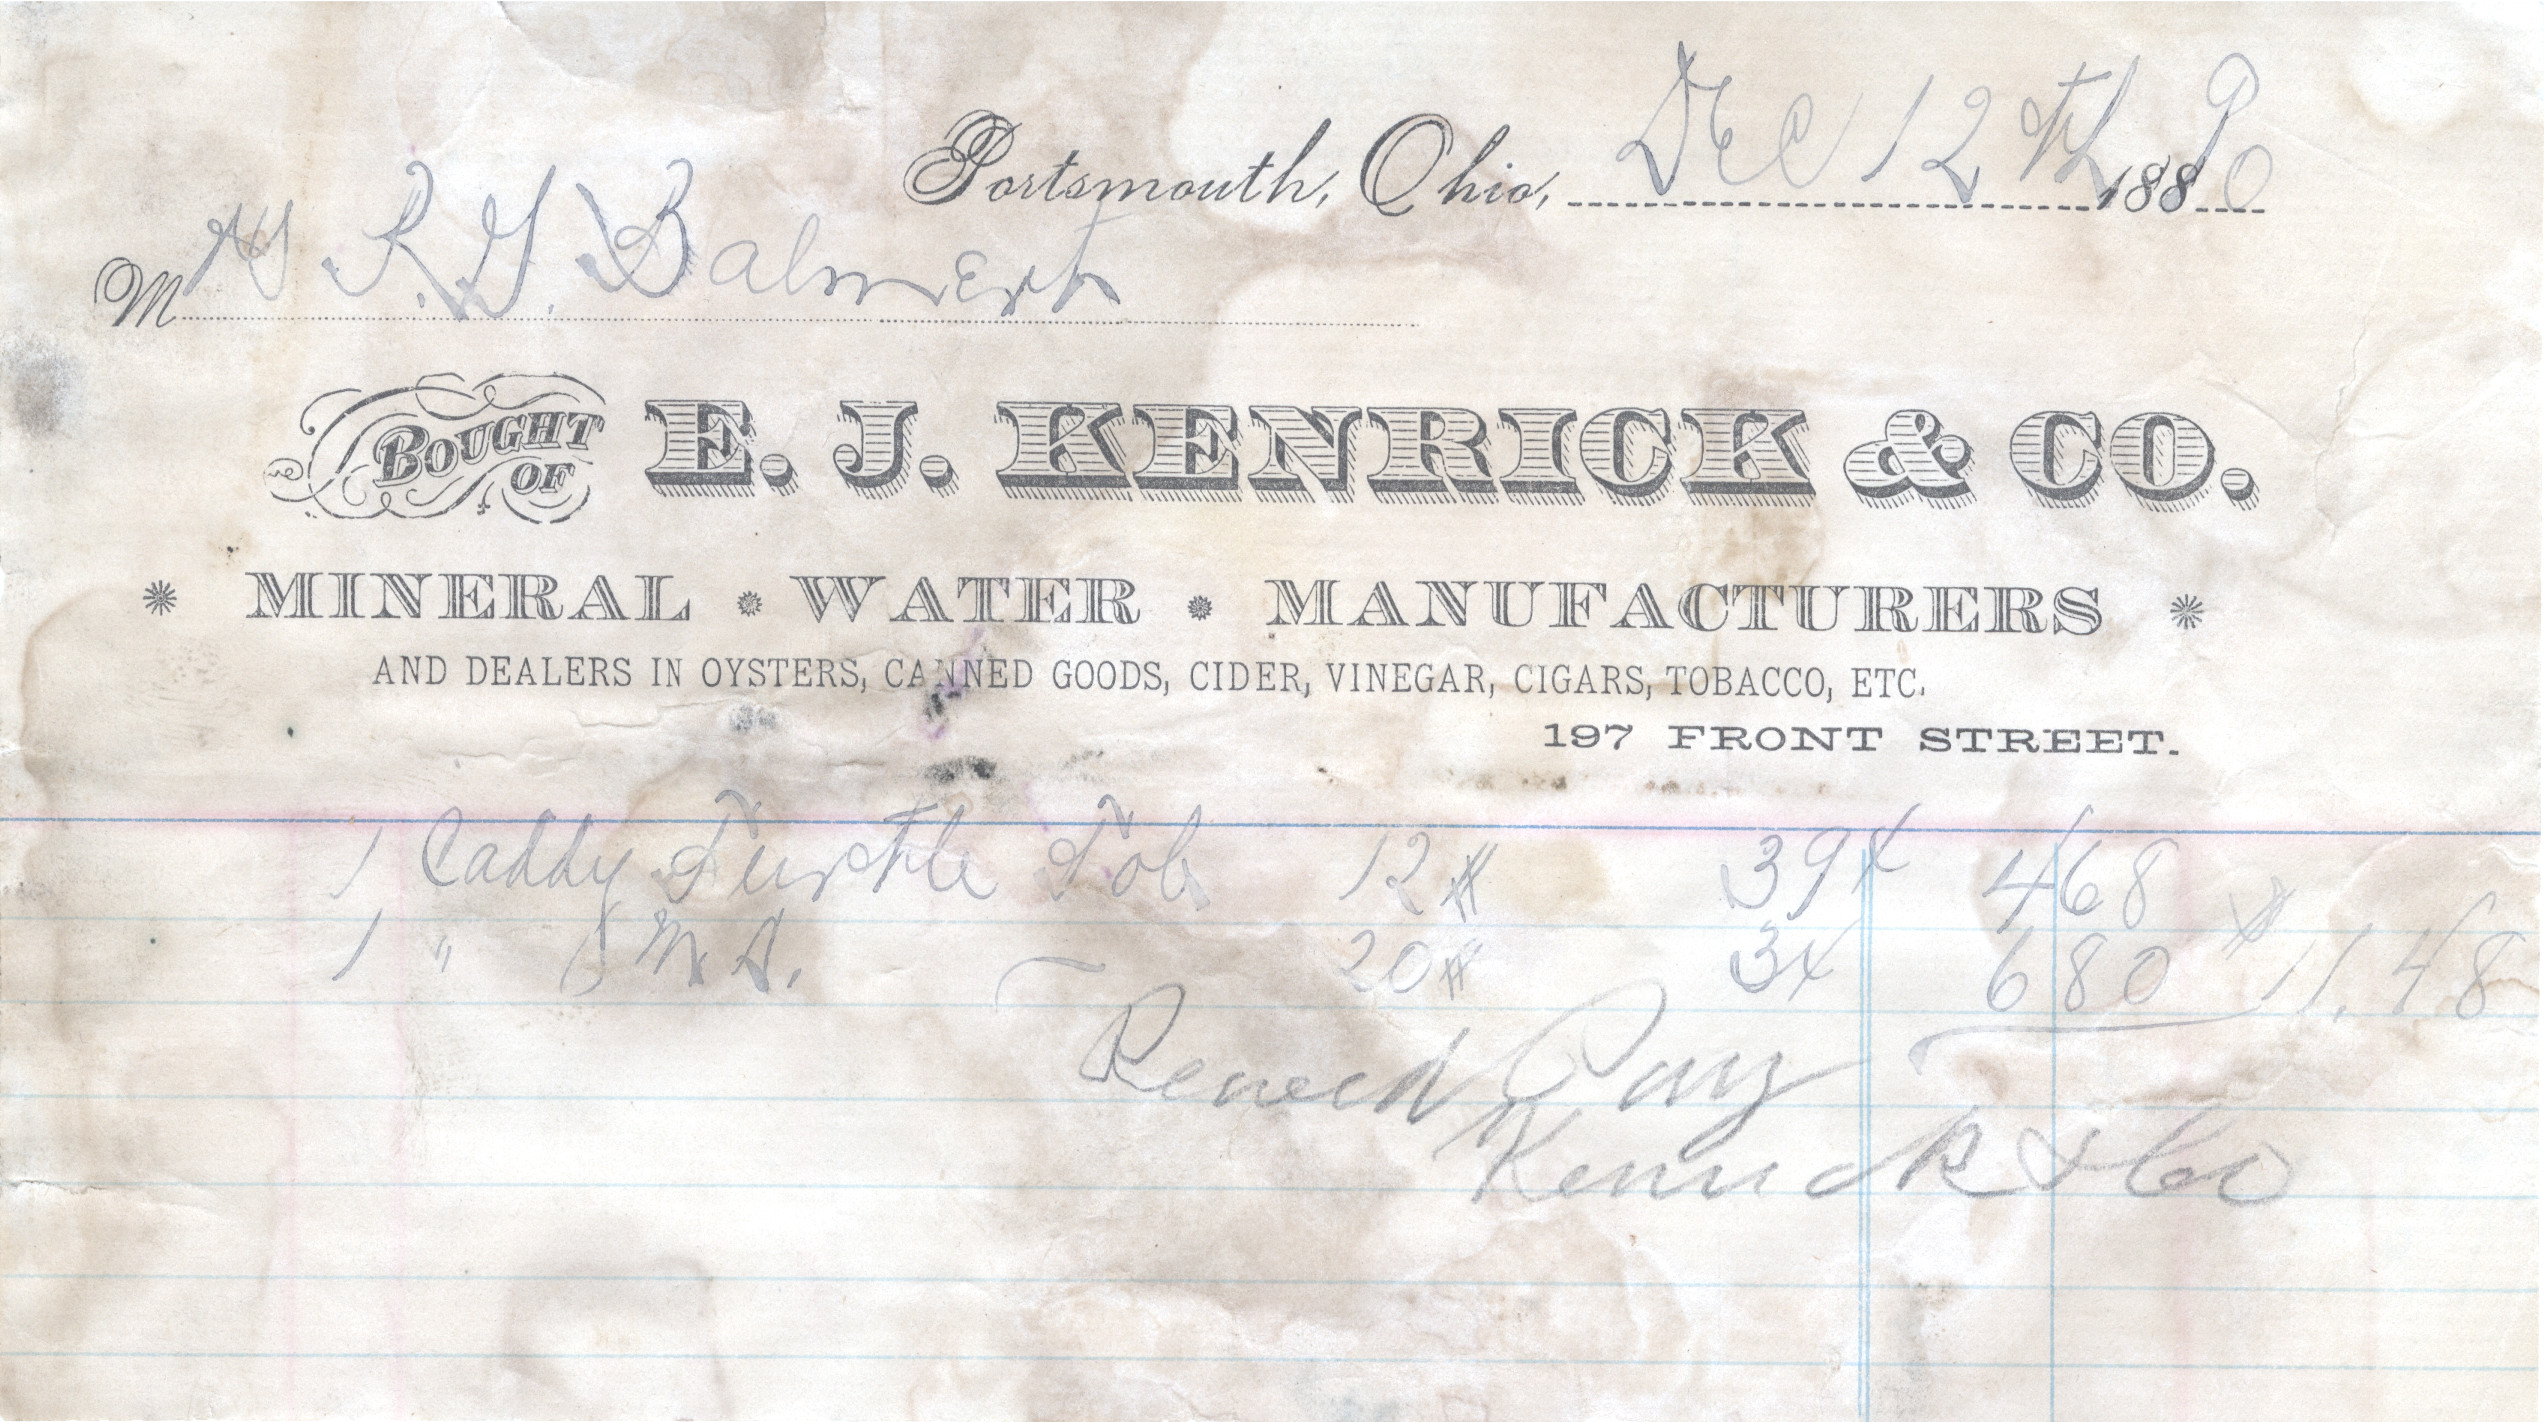 Portsmouth, Ohio, Dec 12th 1890
M R. G. Balmert
BOUGHT OF E. J. KENRICK & CO.
MINERAL WATER MANUFACTURERS
AND DEALERS IN OYSTERS, CANNED GOODS, CIDER, VINEGAR, CIGARS, TOBACCO, ETC.
197 FRONT STREET.
1 Caddy Turtle Tob 12# 39¢ 468
1 " 20# 34 680 $11.48
Receivd Pay
Kenrick & Co